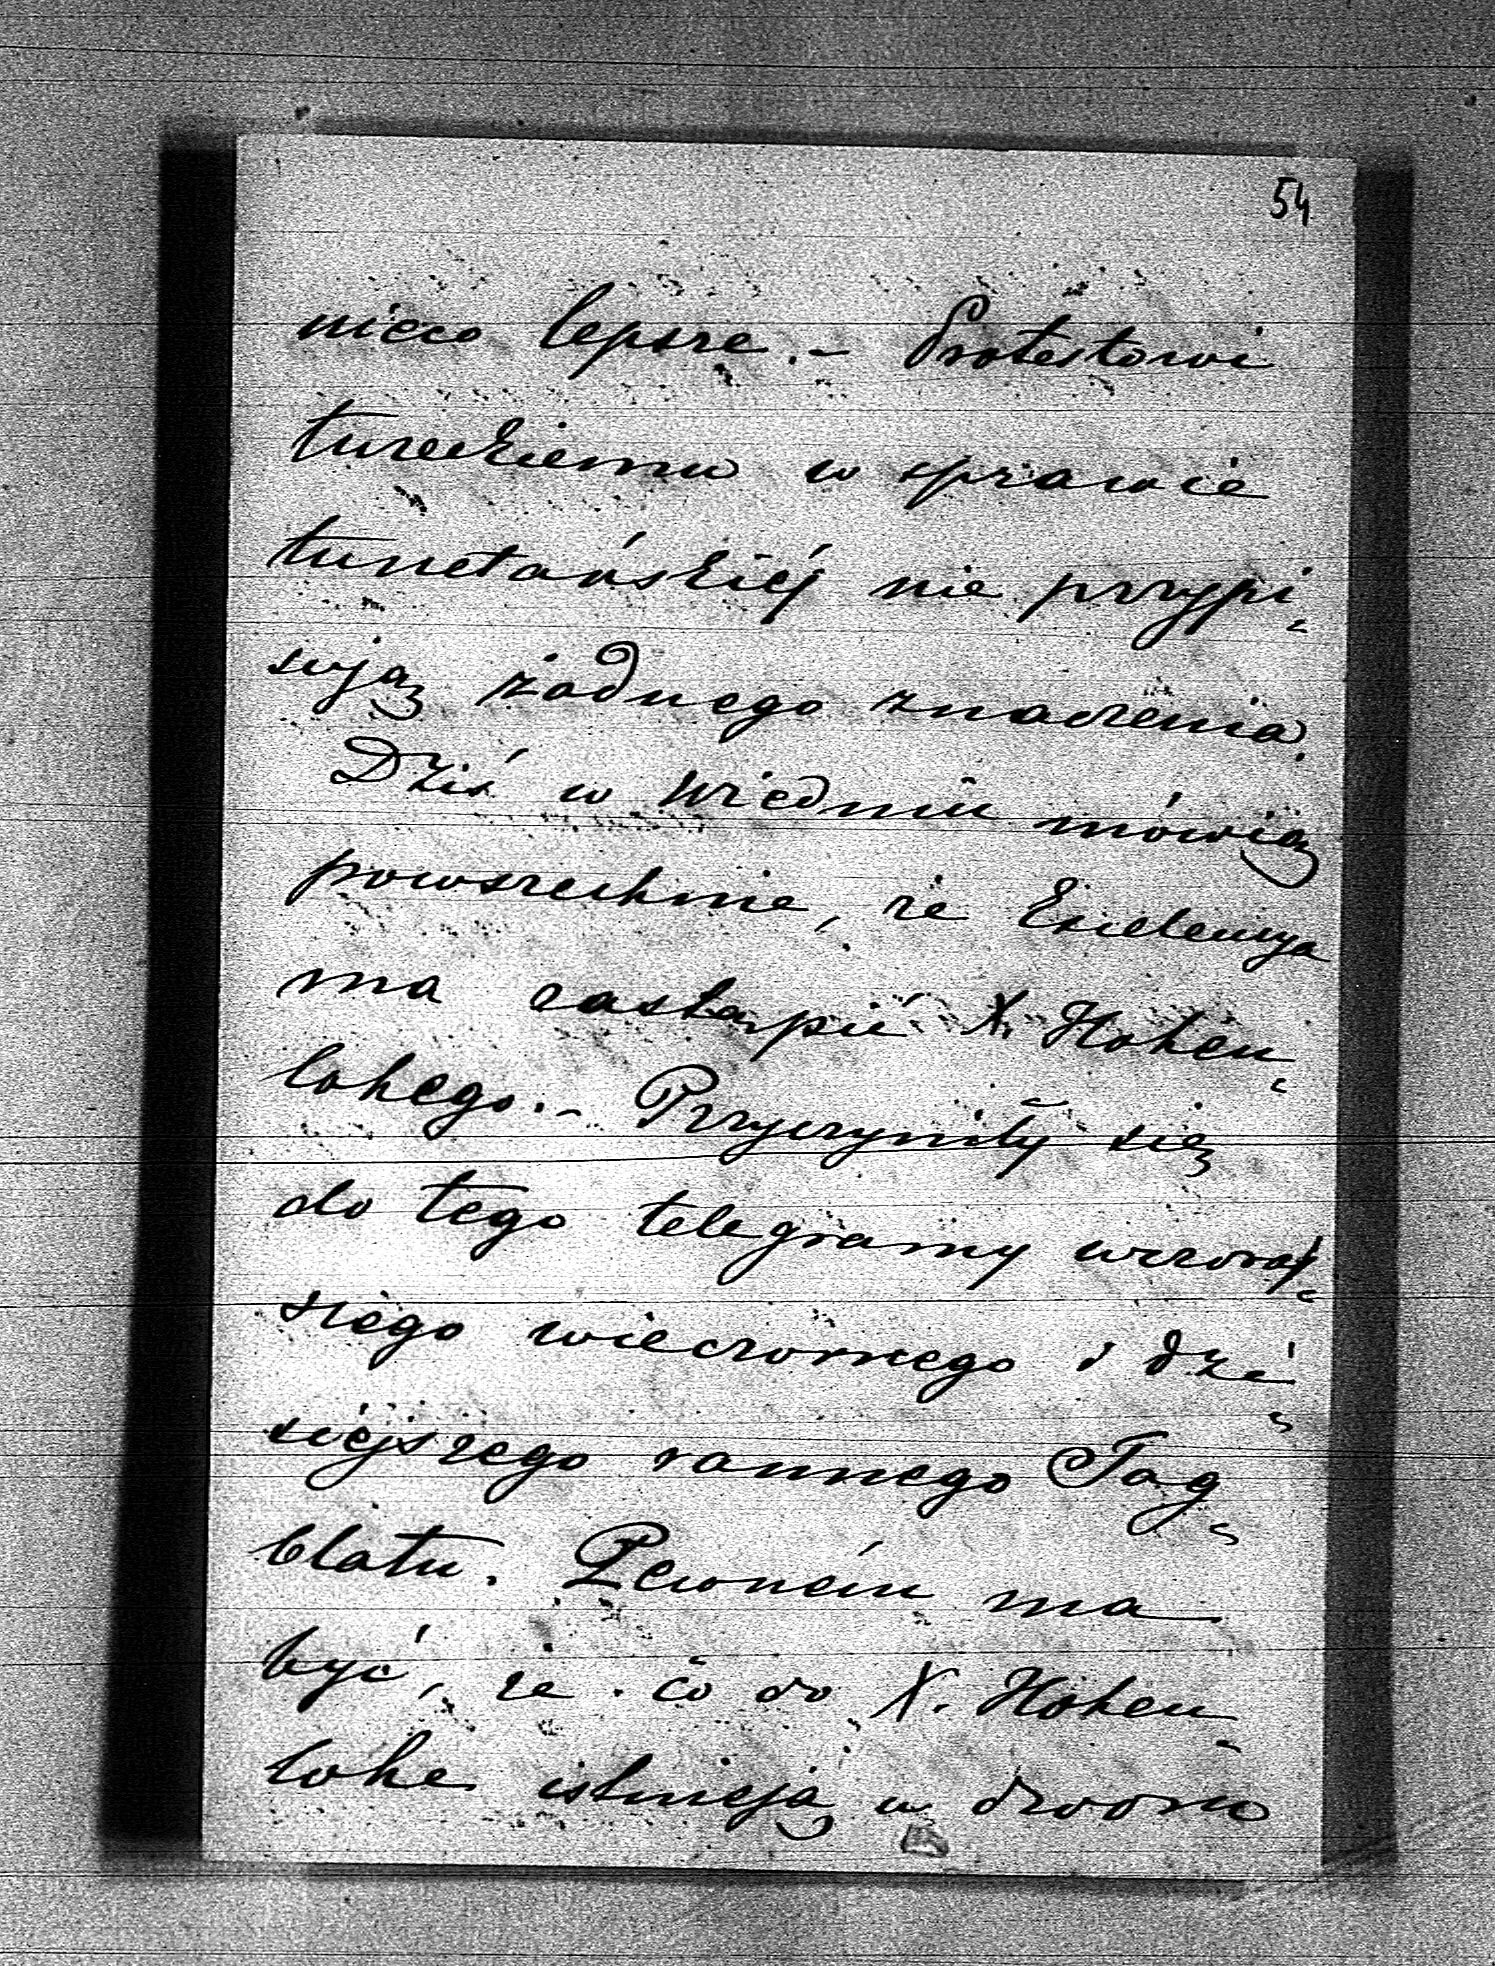 54
nieco lepsze.- Protestowi
tureckiemu w sprawie
tunetańskiéj nie przypi-
sują żadnego znaczenia.
Dziś w Wiedniu mówią
powszechnie, że Excelencya
ma zastąpić X. Hohen-
lohego.- Przyczyniły się
do tego telegramy wczoraj-
szego wieczornego i dzi-
siejszego rannego Tag-
blatu. Pewném ma
być, że co do X. Hohen-
lohe istnieją u dworu